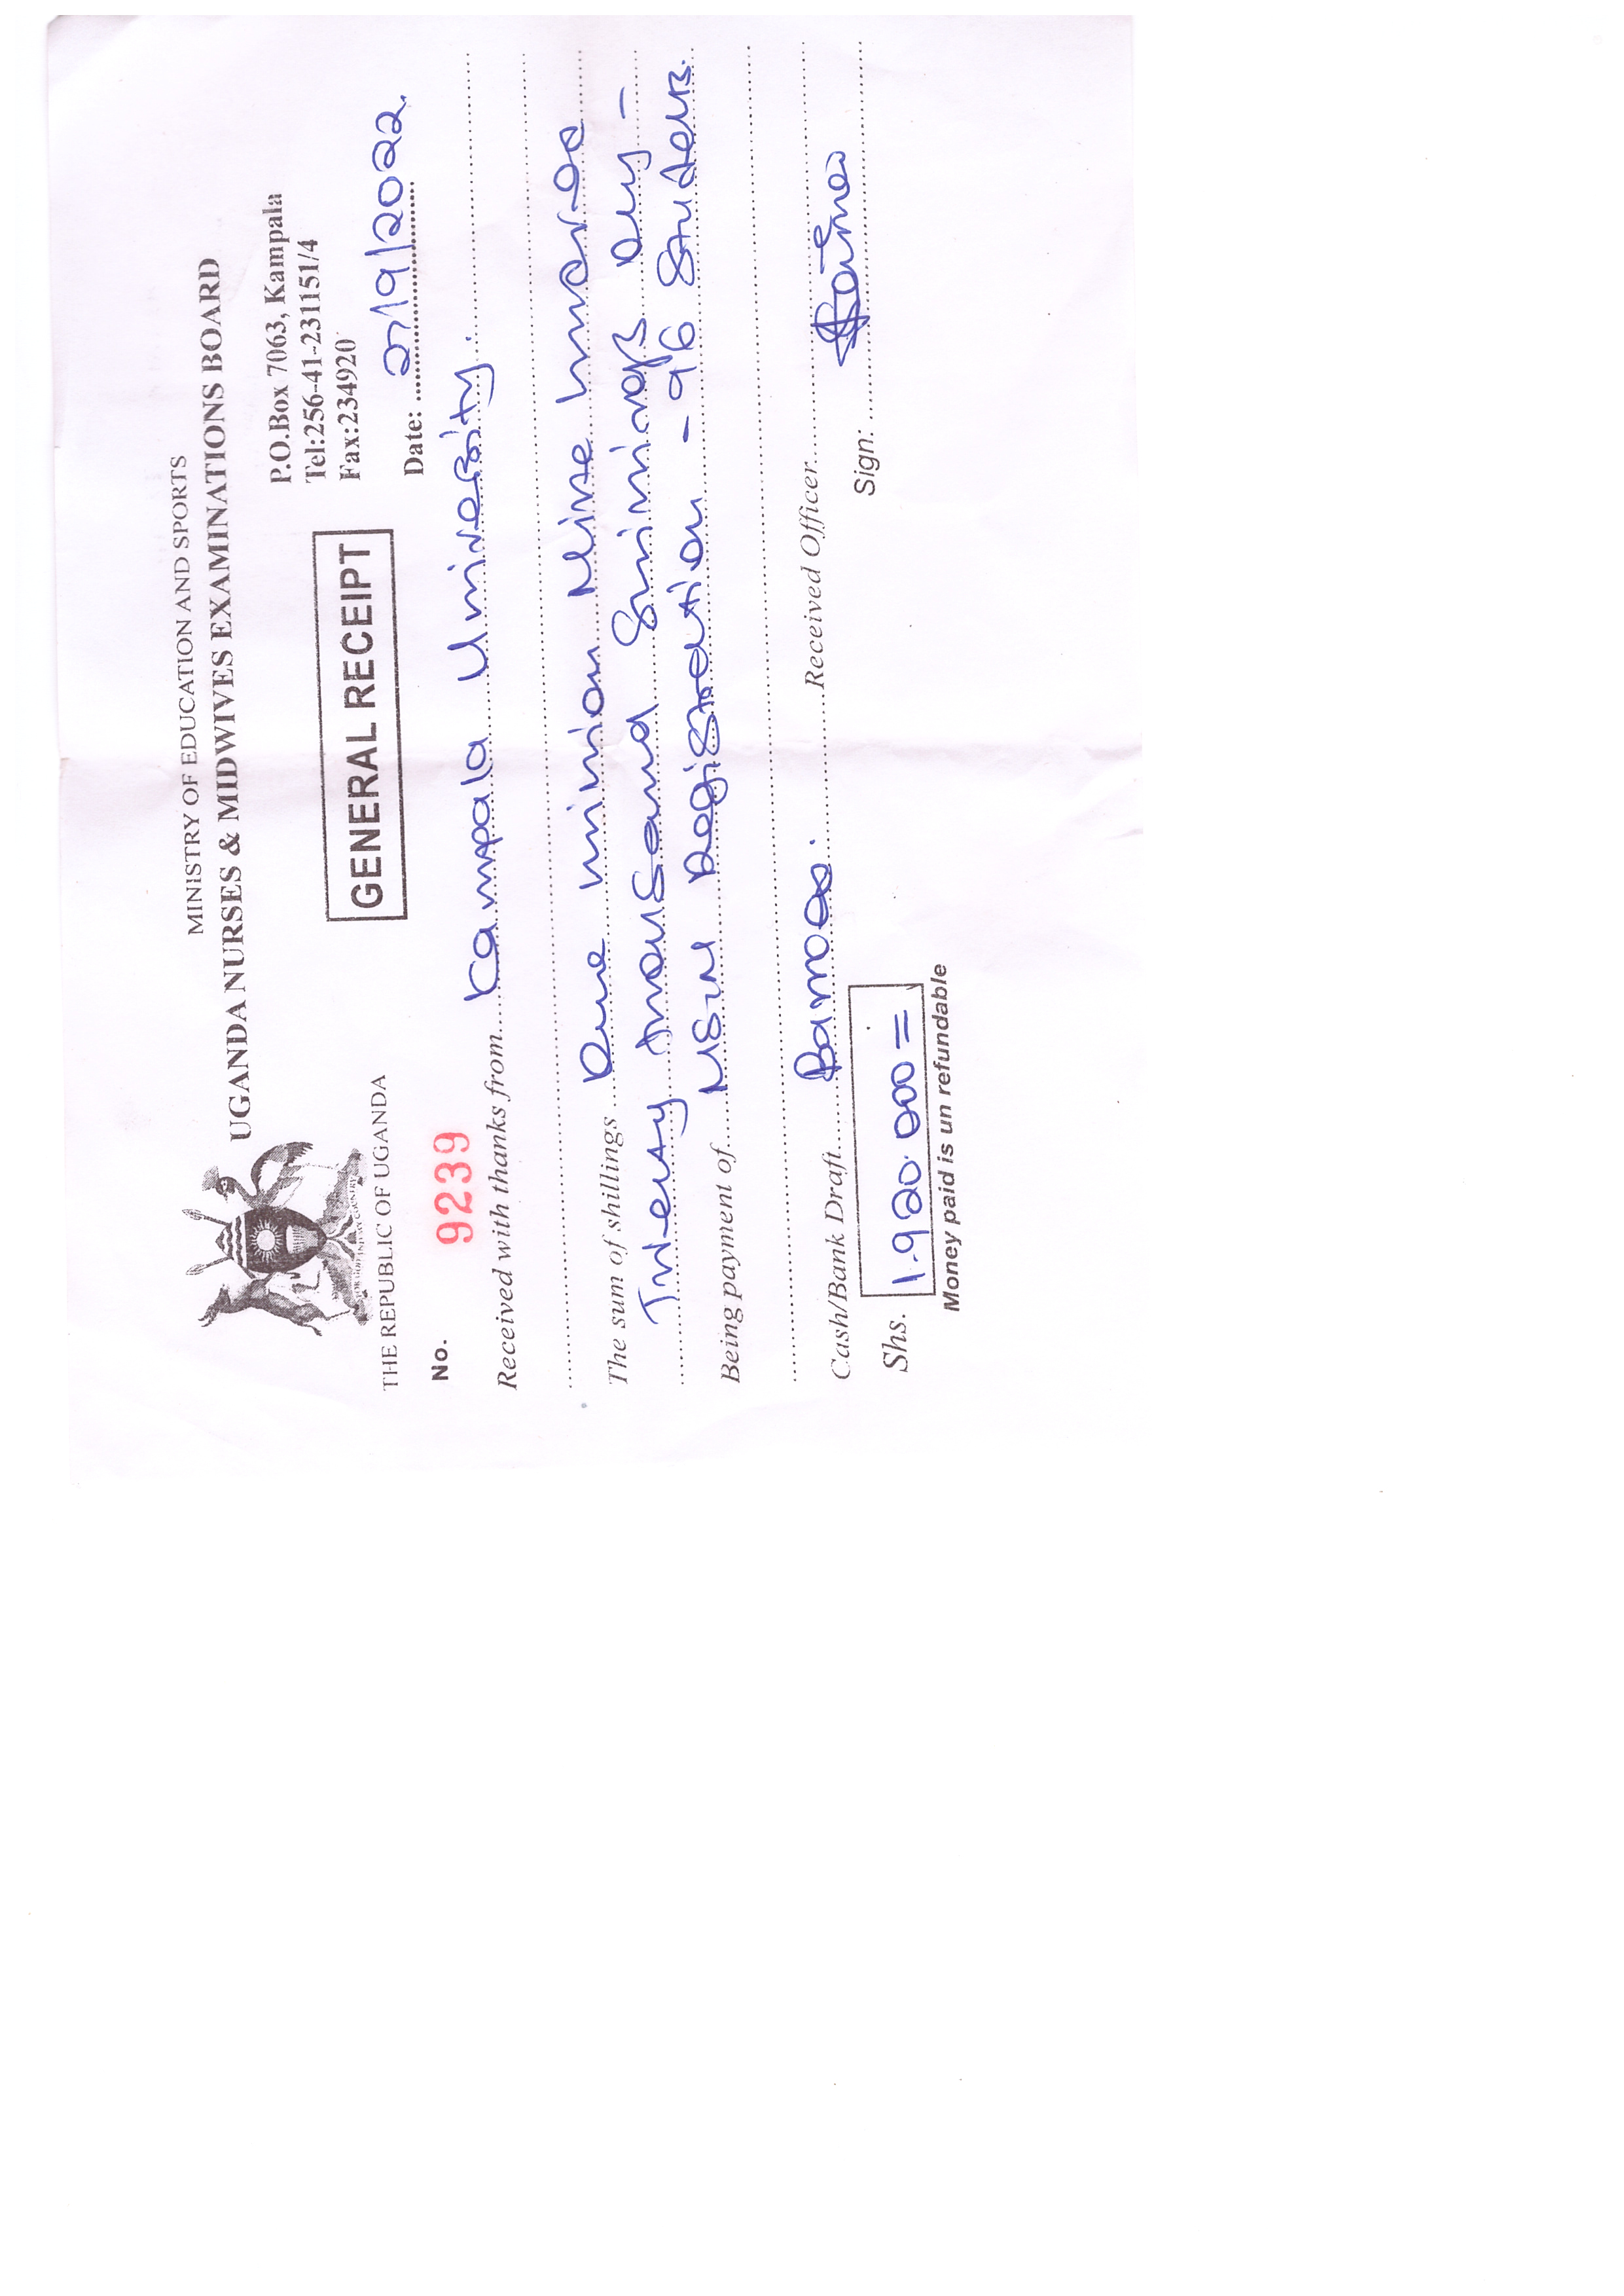 MINISTRY OF EDUCATION AND SPORTS
UGANDA NURSES & MIDWIVES EXAMINATIONS BOARD
THE REPUBLIC OF UGANDA
P.O.Box 7063, Kampala
Tel:256-41-231151/4
Fax:234920
GENERAL RECEIPT
No. 9239
Date: /9/2022.
Received with thanks from Kampala University.
The sum of shillings One million Nine hundred
Twenty thousand Shillings Only -
Being payment of NSIN Registration - 96 Students.
Cash/Bank Draft Received Officer
Shs. 1.920.000=
Sign:
Money paid is un refundable